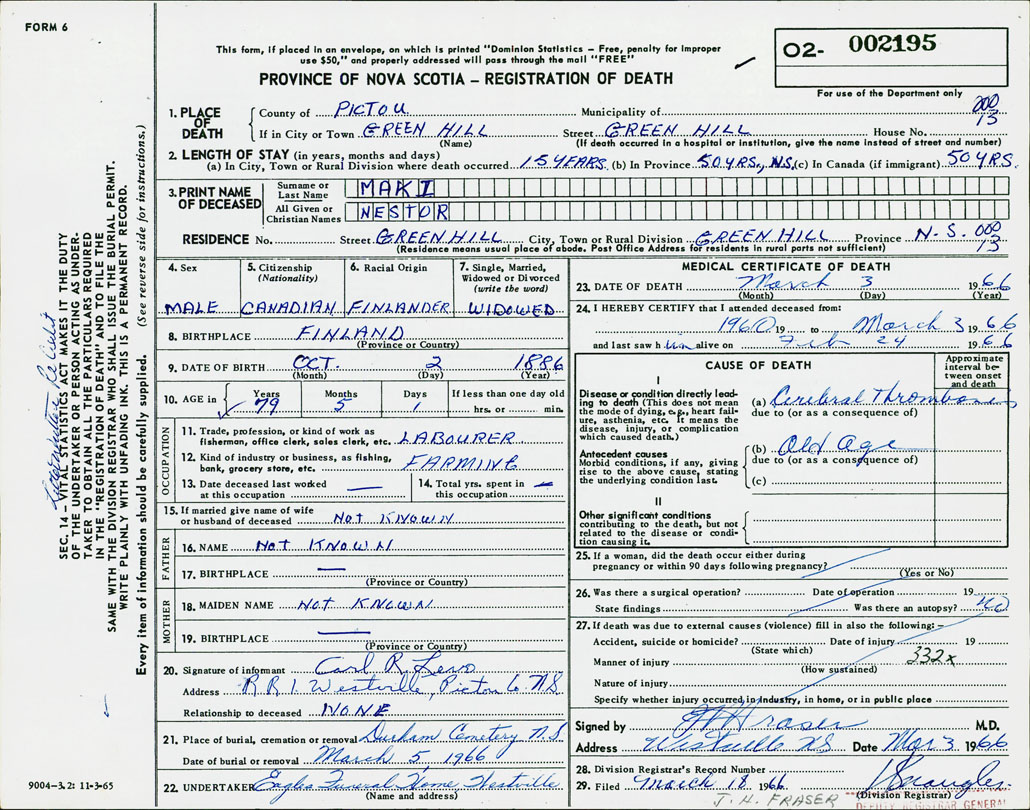 FORM 6
O2- 002195
This form, if placed in an envelope, on which is printed "Dominion Statistics – Free, penalty for improper
use $50," and properly addressed will pass through the mail "FREE"
PROVINCE OF NOVA SCOTIA – REGISTRATION OF DEATH
For use of the Department only
200
13
1. PLACE OF DEATH
County of PICTOU Municipality of
If in City or Town GREEN HILL Street GREEN HILL House No.
(Name) (If death occurred in a hospital or institution, give the name instead of street and number)
2. LENGTH OF STAY (in years, months and days)
(a) In City, Town or Rural Division where death occurred 15 YEARS (b) In Province 50 YRS., N.S. (c) In Canada (if immigrant) 50 YRS.
3. PRINT NAME OF DECEASED
Surname or Last Name MAKI
All Given or Christian Names NESTOR
RESIDENCE No. Street GREEN HILL City, Town or Rural Division GREEN HILL Province N.S. 000
13
(Residence means usual place of abode. Post Office Address for residents in rural parts not sufficient)
4. Sex
MALE
5. Citizenship
(Nationality)
CANADIAN
6. Racial Origin
FINLANDER
7. Single, Married,
Widowed or Divorced
(write the word)
WIDOWED
8. BIRTHPLACE FINLAND
(Province or Country)
9. DATE OF BIRTH OCT. 2 1886
(Month) (Day) (Year)
10. AGE in
Years Months Days If less than one day old
79 5 1 hrs. or min.
OCCUPATION
11. Trade, profession, or kind of work as
fisherman, office clerk, sales clerk, etc. LABOURER
12. Kind of industry or business, as fishing,
bank, grocery store, etc. FARMING
13. Date deceased last worked
at this occupation —
14. Total yrs. spent in
this occupation —
15. If married give name of wife
or husband of deceased NOT KNOWN
FATHER
16. NAME NOT KNOWN
17. BIRTHPLACE —
(Province or Country)
MOTHER
18. MAIDEN NAME NOT KNOWN
19. BIRTHPLACE —
(Province or Country)
20. Signature of informant Carl R.
Address R R 1. Westville, Pictou Co. N.S.
Relationship to deceased NONE
21. Place of burial, cremation or removal Durham Cemetery N.S.
Date of burial or removal March 5, 1966
22. UNDERTAKER Eagles Funeral Home Westville
(Name and address)
MEDICAL CERTIFICATE OF DEATH
23. DATE OF DEATH March 3 1966
(Month) (Day) (Year)
24. I HEREBY CERTIFY that I attended deceased from:
1960 19 to March 3 1966
and last saw him alive on Feb 24 1966
CAUSE OF DEATH
Approximate
interval between
onset
and death
I
Disease or condition directly leading
to death (This does not mean
the mode of dying, e.g., heart failure,
asthenia, etc. It means the
disease, injury, or complication
which caused death.)
(a) Cerebral Thrombosis
due to (or as a consequence of)
Antecedent causes
Morbid conditions, if any, giving
rise to the above cause, stating
the underlying condition last.
(b) Old Age
due to (or as a consequence of)
(c)
II
Other significant conditions
contributing to the death, but not
related to the disease or condition
causing it.
25. If a woman, did the death occur either during
pregnancy or within 90 days following pregnancy?
(Yes or No)
26. Was there a surgical operation? Date of operation 19
State findings Was there an autopsy? NO
27. If death was due to external causes (violence) fill in also the following:–
Accident, suicide or homicide? Date of injury 19
(State which)
Manner of injury 332x
(How sustained)
Nature of injury
Specify whether injury occurred in industry, in home, or in public place
Signed by J H Fraser M.D.
Address Westville NS Date Mar 3 1966
28. Division Registrar's Record Number
29. Filed March 18 1966
(Division Registrar)
J. H. FRASER
DEPUTY REGISTRAR GENERAL
SEC. 14 – VITAL STATISTICS ACT MAKES IT THE DUTY
OF THE UNDERTAKER OR PERSON ACTING AS UNDERTAKER
TO OBTAIN ALL THE PARTICULARS REQUIRED
IN THE "REGISTRATION OF DEATH" AND TO FILE THE
SAME WITH THE DIVISION REGISTRAR WHO SHALL ISSUE THE BURIAL PERMIT.
WRITE PLAINLY WITH UNFADING INK. THIS IS A PERMANENT RECORD.
Every item of information should be carefully supplied. (See reverse side for instructions.)
9004-3.2: 11-3-65